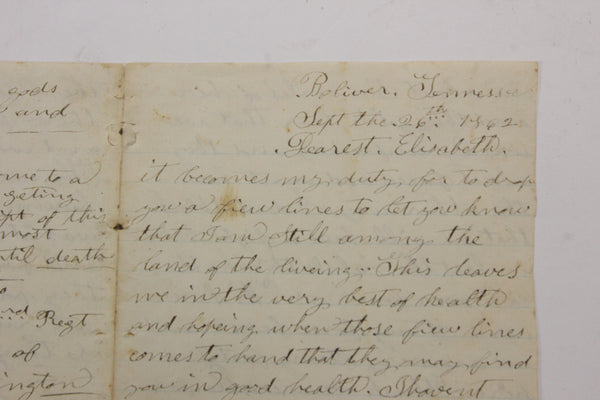 gods
and
ome to a
geting
ipt of this
most
ntil death
to
rd Regt
of
ington
Boliver. Tennessee
Sept the. 26th. 1862
Dearest. Elisabeth.
it becomes my duty, for to drop
you a fiew lines to let you know
that I am Still among the
land of the liveing. This leaves
me in the very best of health
and hopeing when those fiew lines
comes to hand that they may find
you in good health. I havent